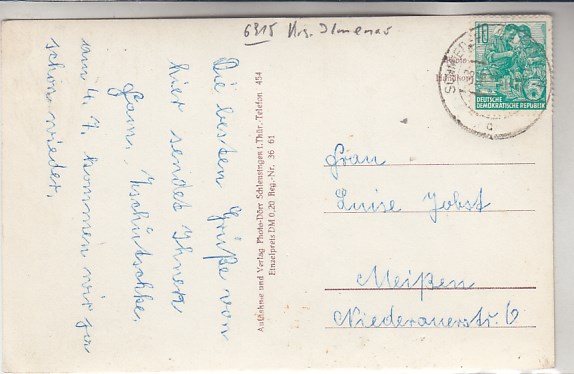 6315 Krs. Ilmenau
Die besten Grüße von
hier sendet Ihnen
Fam. Zschütschke.
am 4. 7. kommen wir ja
schon wieder.
Aufnahme und Verlag Photo-Dörr Schleusingen i. Thür. - Telefon 454
Einzelpreis DM 0,20 Reg.-Nr. 36 61
10
DEUTSCHE
DEMOKRATISCHE REPUBLIK
c
Frau
Luise Jobst
Meißen
Niederauerstr. 6